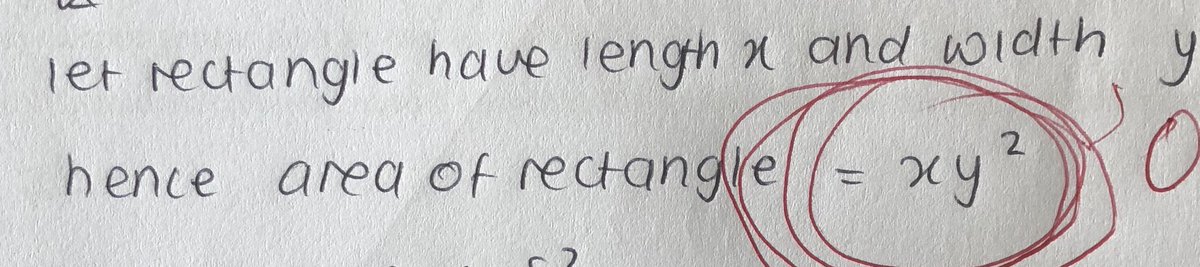 let rectangle have length x and width y
hence area of rectangle = xy² 0